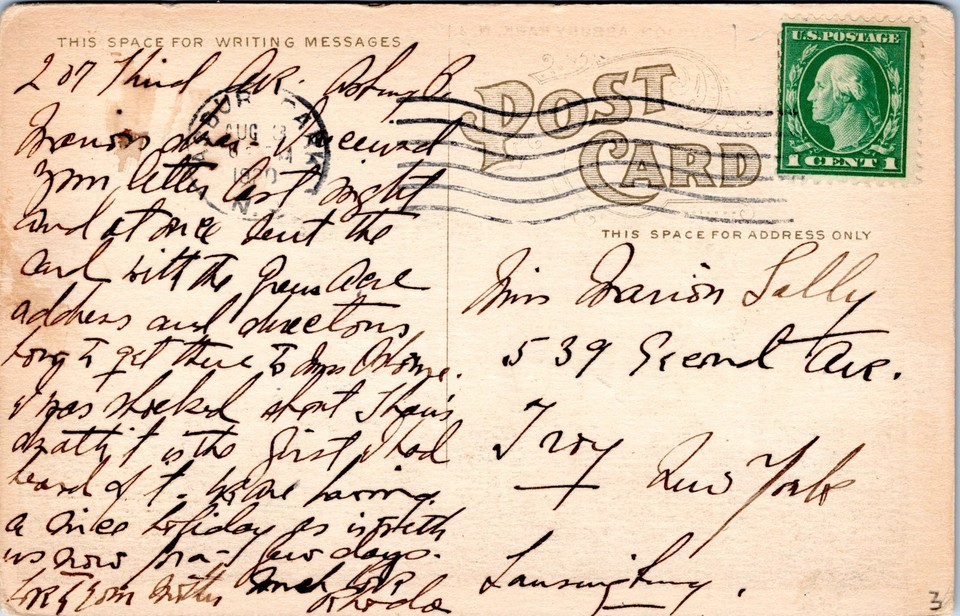 THIS SPACE FOR WRITING MESSAGES
207 Third Ave. Asbury P.
Marion dear, I received
your letter last night
and at once sent the
card with the Green Acre
address and directions
how to get there to Miss
I was shocked about
death, it is the first I had
heard of it. We are having
a nice holiday is with
us now for a few days.
Love to your Mother Much love
Rhoda
POST CARD
ASBURY PARK
AUG 3
1920
N.J.
U.S. POSTAGE
1 CENT 1
THIS SPACE FOR ADDRESS ONLY
Miss Marion Lally
539 Second Ave.
Troy
New York
Lansingburg.
3